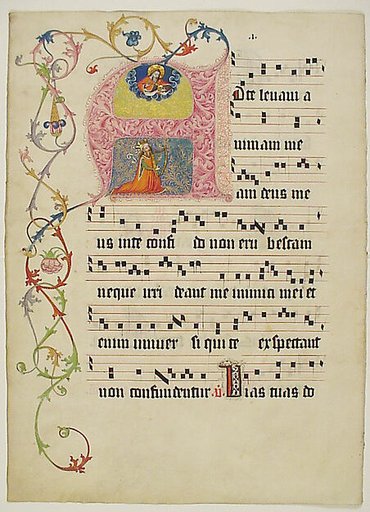 .i.
ADte leuaui a
nimam me
am deus me
us inte confi do non eru bescam
neque irri deant me inimici mei et
enim univer si qui te expectant
non confundentur. v. Uias tuas do